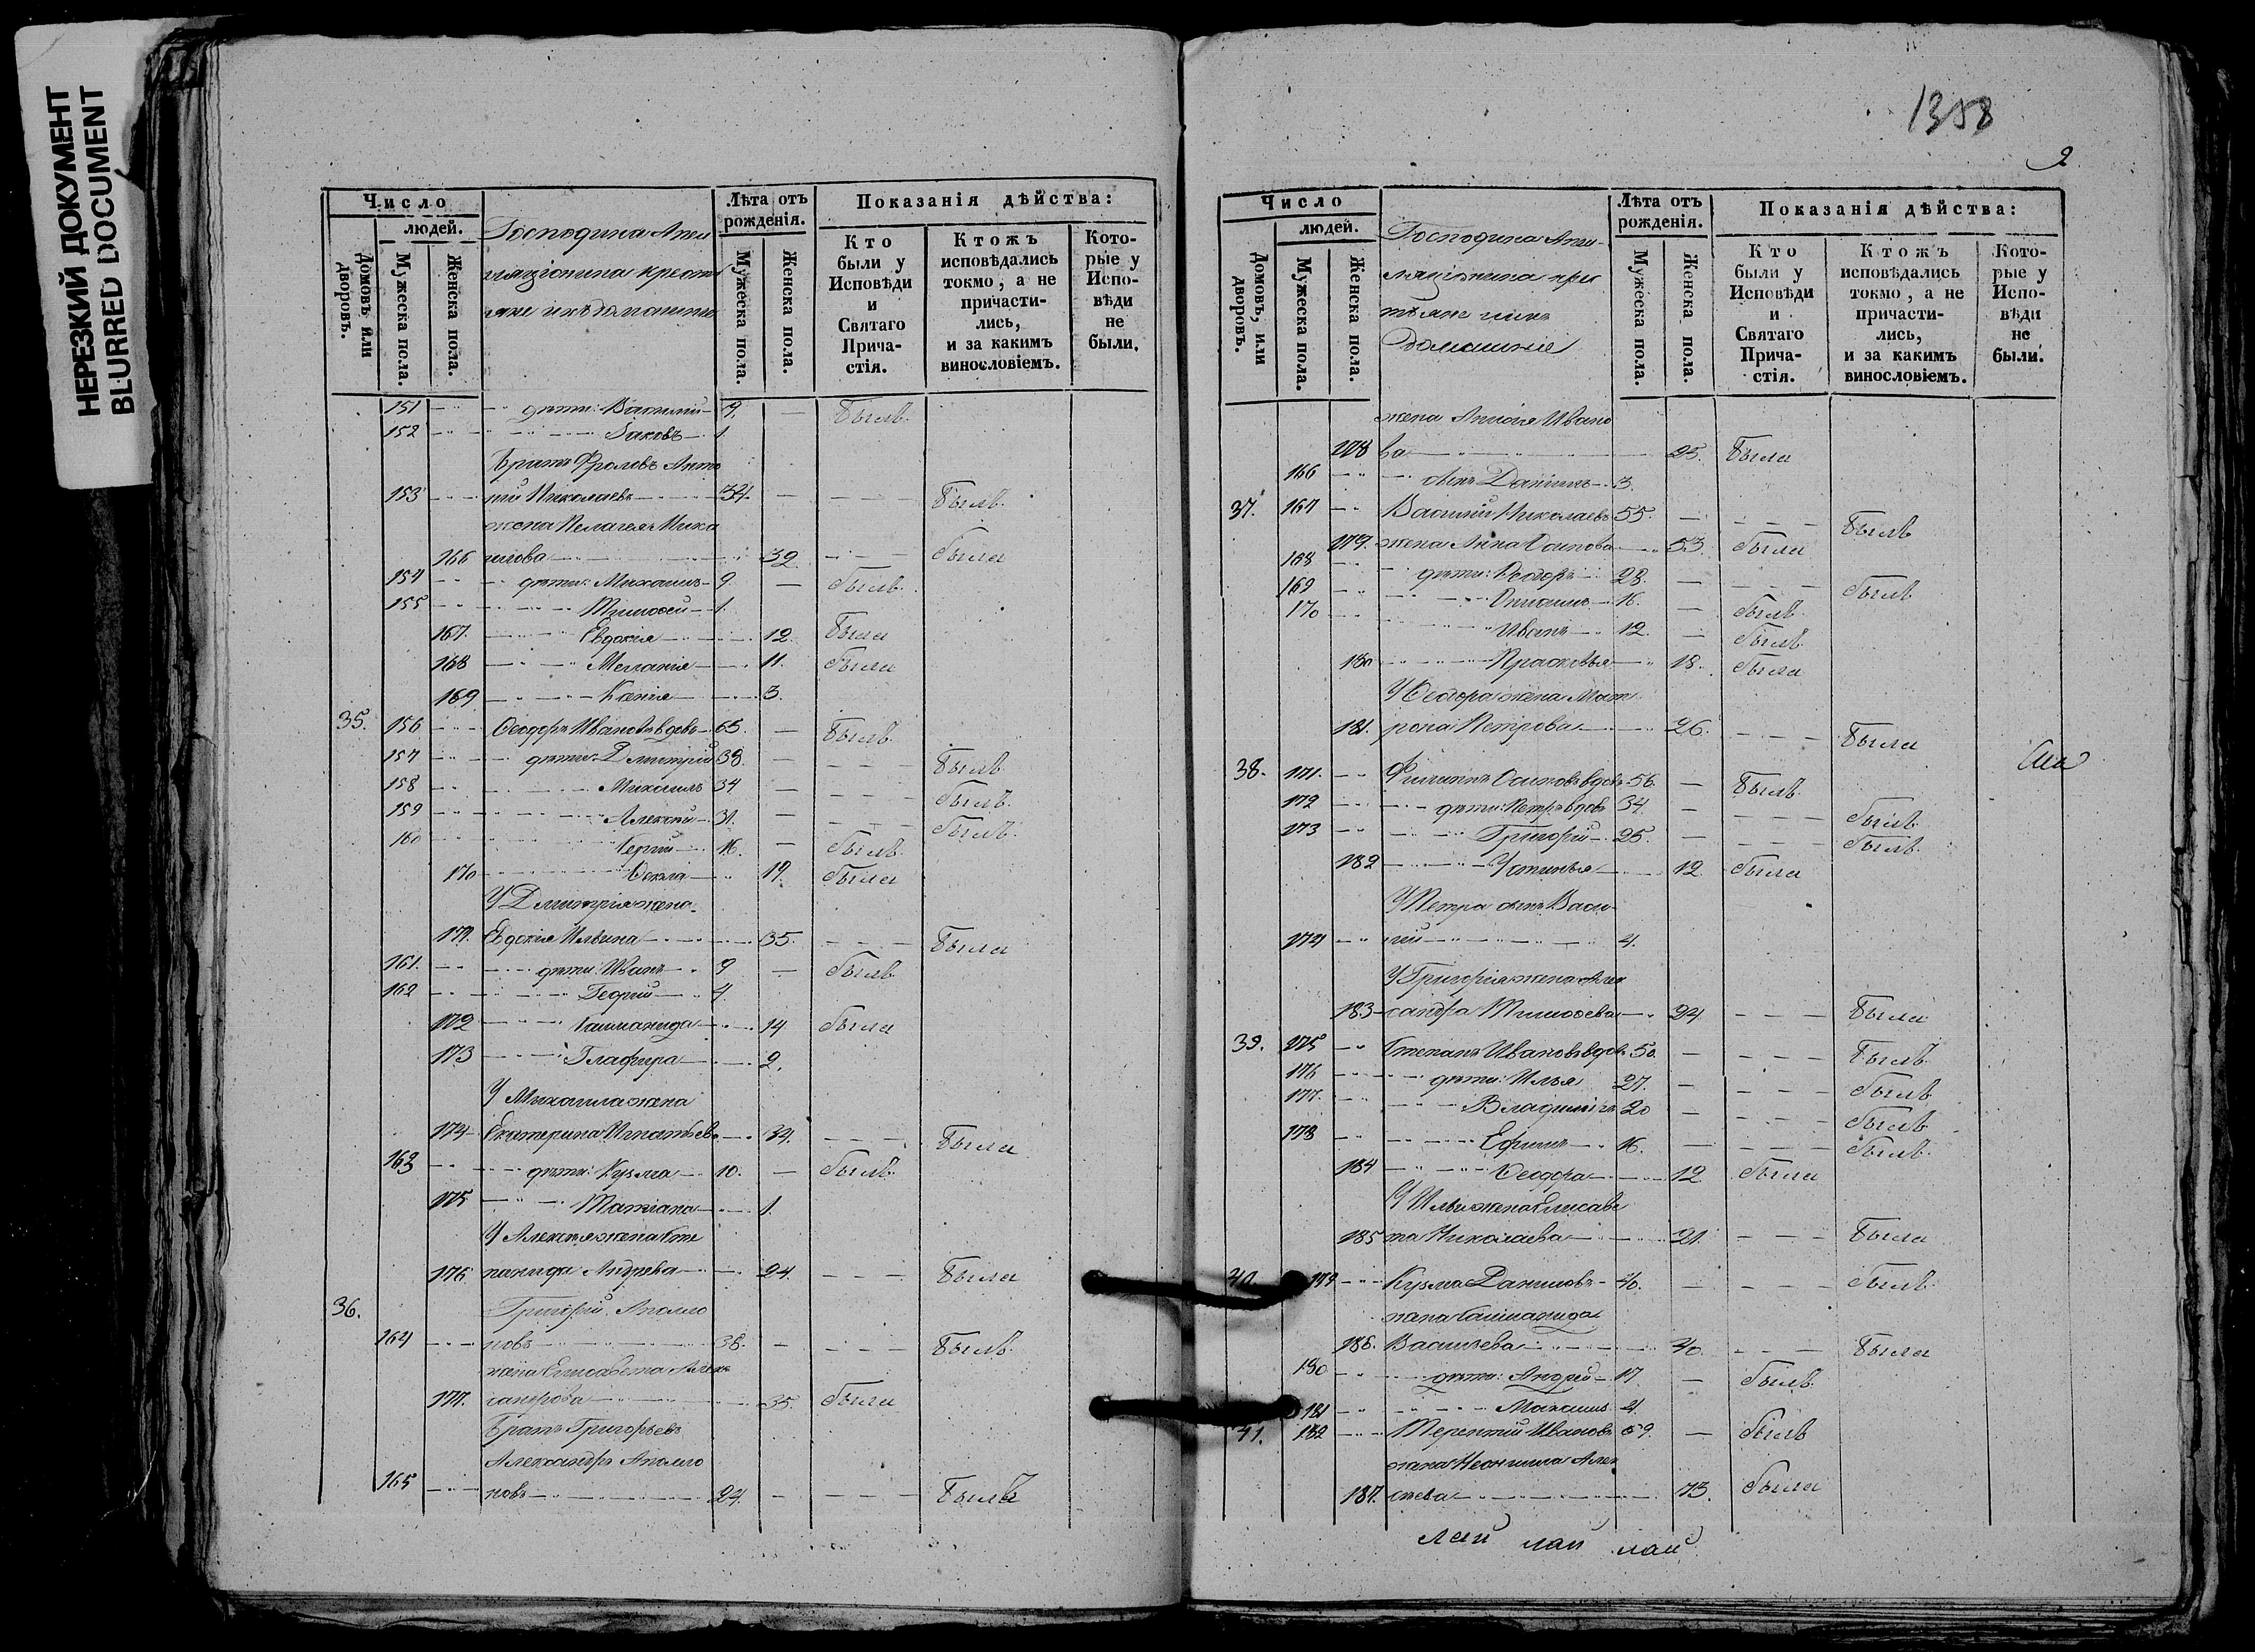 НЕРЕЗКИЙ ДОКУМЕНТ
BLURRED DOCUMENT
Число
людей.
Домовъ или дворовъ.
Мужеска пола.
Женска пола.
Господина Апел
ляціонина крестья
яне и ихъ домашніе
Лѣта отъ рожденія.
Мужеска пола.
Женска пола.
Показанія дѣйства:
Кто были у Исповѣди и Святаго Прича-стія.
Ктожъ исповѣдались токмо, а не причасти-лись, и за какимъ винословіемъ.
Кото-рые у Испо-вѣди не были.
151 дѣти: Василій 9. Былъ
152 Іаковъ 1
Братъ Фроловъ Анто
153 ній Николаевъ 34. Былъ
жена Пелагея Миха
166 илова 32 была
154 дѣти: Михаилъ 9. былъ
155 Тимоѳей 1.
167. Евдокія 12. Была
168 Меланія 11. была
169 Ксенія 3.
35. 156 Ѳеодоръ Ивановъ вдовъ 65. Былъ
157 дѣти: Димитрій 38. Былъ
158 Михаилъ 34 былъ
159 Алексѣй 31. былъ
160 Сергій 16. былъ
170 Ѳекла 19. была
У Димитрія жена
171. Евдокія Ильина 35. Была
161. дѣти: Иванъ 9 былъ
162 Георгій 4.
172 Саламанида 14 была
173 Глафира 2.
У Михаила жена
174 Екатерина Игнатьева 34. Была
163 дѣти: Кузма 10. былъ
175 Татіана 1.
У Алексѣя жена Сте
176 панида Андреева 24. Была
36. Григорій Аполло
164 новъ 38. Былъ
жена Елисавета Алекс
177. сандрова 35. была
Братъ Григорьевъ
Александръ Аполло
165 новъ 24. Былъ
1358
9
Число
людей.
Домовъ, или дворовъ.
Мужеска пола.
Женска пола.
Господина Апел-
ляціонина крес
тьяне и ихъ
домашніе
Лѣта отъ рожденія.
Мужеска пола.
Женска пола.
Показанія дѣйства:
Кто были у Исповѣди и Святаго Прича-стія.
Ктожъ исповѣдались токмо, а не причасти-лись, и за какимъ винословіемъ.
Кото-рые у Испо-вѣди не были.
жена Анисія Ивано
178 ва 25. Была
166 сынъ Даніилъ 3.
37. 167 Василій Николаевъ 55. Былъ
179. жена Анна Осипова 53. была
168 дѣти: Ѳеодоръ 28. былъ
169 16. былъ
170 Иванъ 12. былъ
180 Прасковья 18. была
У Ѳеодора жена Мат
181. рона Петрова 26. Была
38. 171. Филиппъ Осиповъ вдовъ 56. Былъ
172 дѣти: Петръ вдовъ 34. былъ
173 Григорій 25. былъ
182 Устинья 12 была
У Петра сынъ Васи-
174 лій 4.
У Григорія жена Алек
183 сандра Тимоѳеева 24 Была
39. 175 Степанъ Ивановъ вдовъ 50. Былъ
176 дѣти: Илья 27. былъ
177. Владиміръ 20 былъ
178 Ефимъ 16. былъ
184 Ѳеодора 12 была
У Ильи жена Елисаве
185 та Николаева 21. Была
40. 179 Кузма Даниловъ 46. былъ
жена Саламанида
186. Васильева 40. Была
180 дѣти: Андрей 17 былъ
181 Михаилъ 4.
41. 182 Терентій Ивановъ 69. былъ
жена Неонила Алек
187. сѣева 73. была
лай лай лай